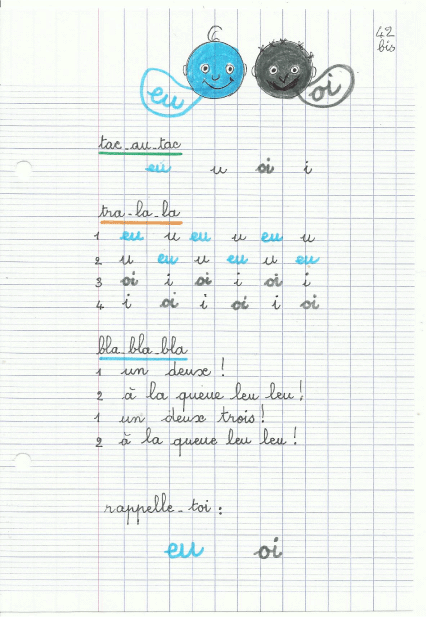 42
bis
eu oi
tac_au_tac
eu u oi i
tra_la_la
1 eu u eu u eu u
2 u eu u eu u eu
3 oi i oi i oi i
4 i oi i oi i oi
bla_bla_bla
1 un deux !
2 à la queue leu leu !
1 un deux trois !
2 à la queue leu leu !
rappelle_toi :
eu oi